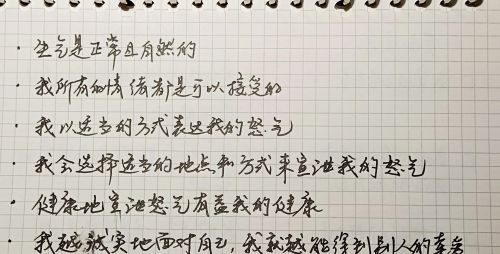 · 生气是正常且自然的
· 我所有的情绪都是可以接受的
· 我以适当的方式表达我的怒气
· 我会选择适当的地点和方式来宣泄我的怒气
· 健康地宣泄怒气有益我的健康
· 我越诚实地面对自己,我就越能得到别人的喜爱